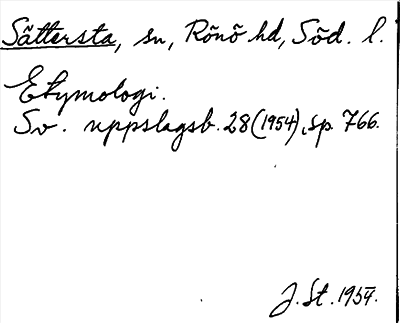 Sättersta, sn, Rönö hd, Söd. l.
Etymologi.
Sv. uppslagsb. 28 (1954), sp. 766.
J. St. 1954.